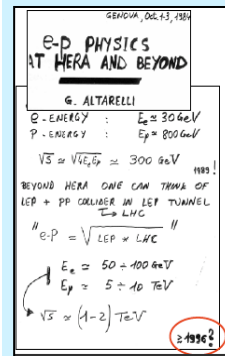 GENOVA, Oct. 1-3, 1984
e-p PHYSICS
AT HERA AND BEYOND
G. ALTARELLI
e-ENERGY : Ee ≃ 30 GeV
P-ENERGY : Ep ≃ 800 GeV
√s ≃ √4EeEp ≃ 300 GeV
1989!
BEYOND HERA ONE CAN THINK OF
LEP + PP COLLIDER IN LEP TUNNEL
↳ LHC
"e-p = √LEP × LHC"
Ee ≃ 50 ÷ 100 GeV
Ep ≃ 5 ÷ 10 TeV
√s ≃ (1-2) TeV
≥1996?